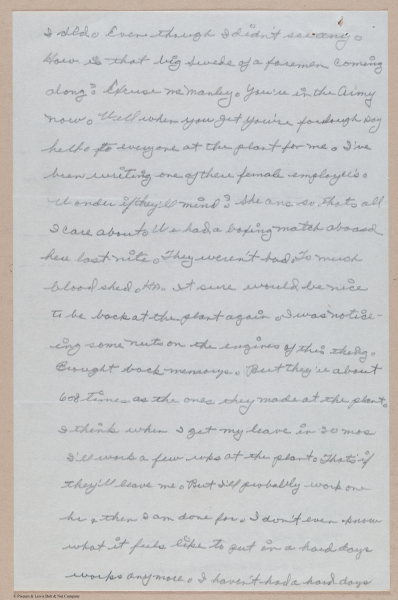 I did. Even though I didn't see any.
How is that big swede of a foremen coming
along? Excuse me Manley. You're in the Army
now. Well when you get you're fordough say
hello to everyone at the plant for me. I've
been writing one of there female employe's.
Wonder if they'll mind? She ans. so thats all
I care about. We had a boxing match aboard
here last nite. They weren't bad. To much
blood shed. Ha. It sure would be nice
to be back at the plant again. I was notice-
ing some nuts on the engines of this thing.
Brought back memorys. But they're about
6 or 8 times as the ones they made at the plant.
I think when I get my leave in 20 mos
I'll work a few wks at the plant. That's if
they'll leave me. But I'll probably work one
hr. then I am done for. I don't even know
what it feels like to put in a hard days
works anymore. I haven't had a hard days
© Pheoun & Lewis Bolt & Nut Company